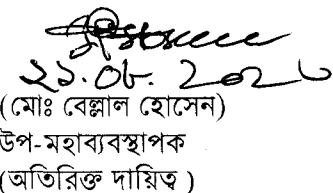 ২১.০৮.২০২৩
(মোঃ বেল্লাল হোসেন)
উপ-মহাব্যবস্থাপক
(অতিরিক্ত দায়িত্ব )